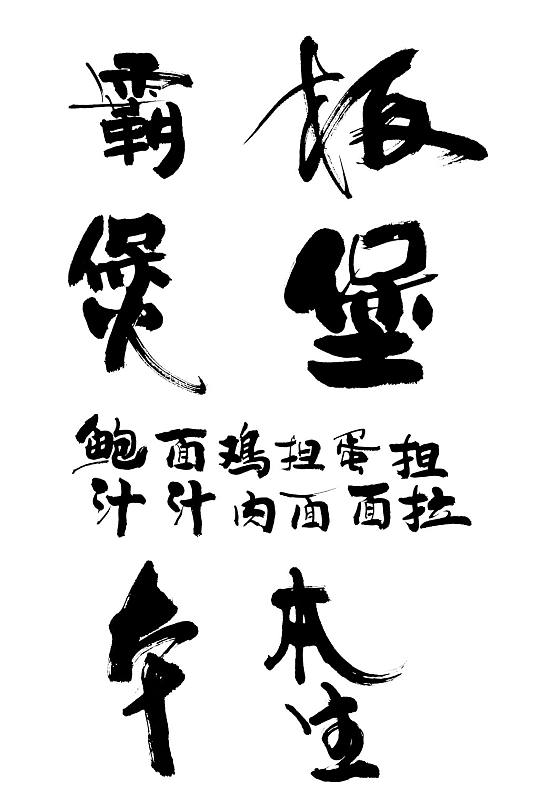 霸 板
煲 堡
鲍 面 鸡 担 蛋 担
汁 汁 肉 面 面 拉
本
生